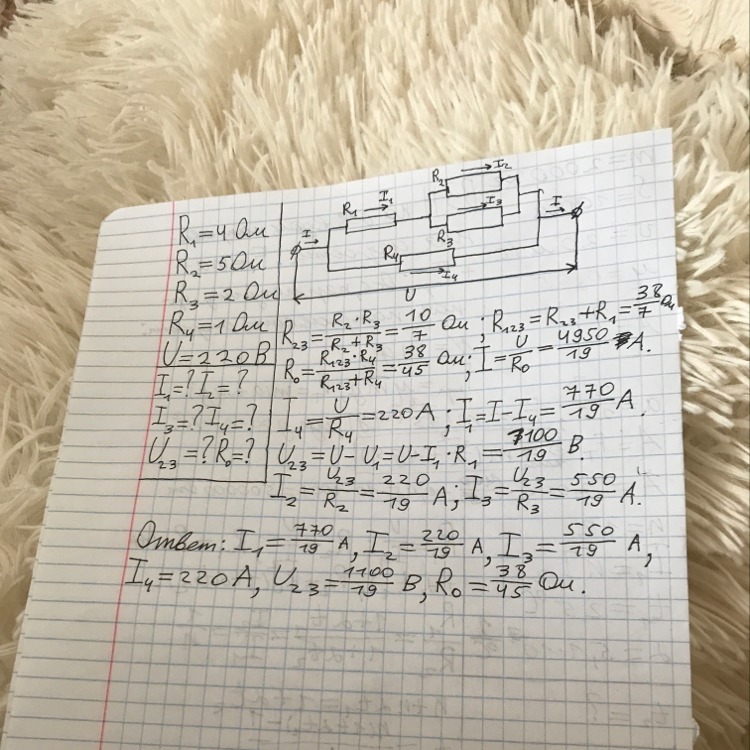 R₁=4 Ом
R₂=5 Ом
R₃=2 Ом
R₄=1 Ом
U=220 В
I₁=? I₂=?
I₃=? I₄=?
U₂₃=? R₀=?
I R₁ I₁ R₂ I₂ R₃ I₃ R₄ I₄ I
U
R₂₃=R₂·R₃/(R₂+R₃)=10/7 Ом; R₁₂₃=R₂₃+R₁=38/7 Ом
R₀=R₁₂₃·R₄/(R₁₂₃+R₄)=38/45 Ом; I=U/R₀=4950/19 А.
I₄=U/R₄=220 А; I₁=I-I₄=770/19 А.
U₂₃=U-U₁=U-I₁·R₁=1100/19 В
I₂=U₂₃/R₂=220/19 А; I₃=U₂₃/R₃=550/19 А.
Ответ: I₁=770/19 А, I₂=220/19 А, I₃=550/19 А,
I₄=220 А, U₂₃=1100/19 В, R₀=38/45 Ом.